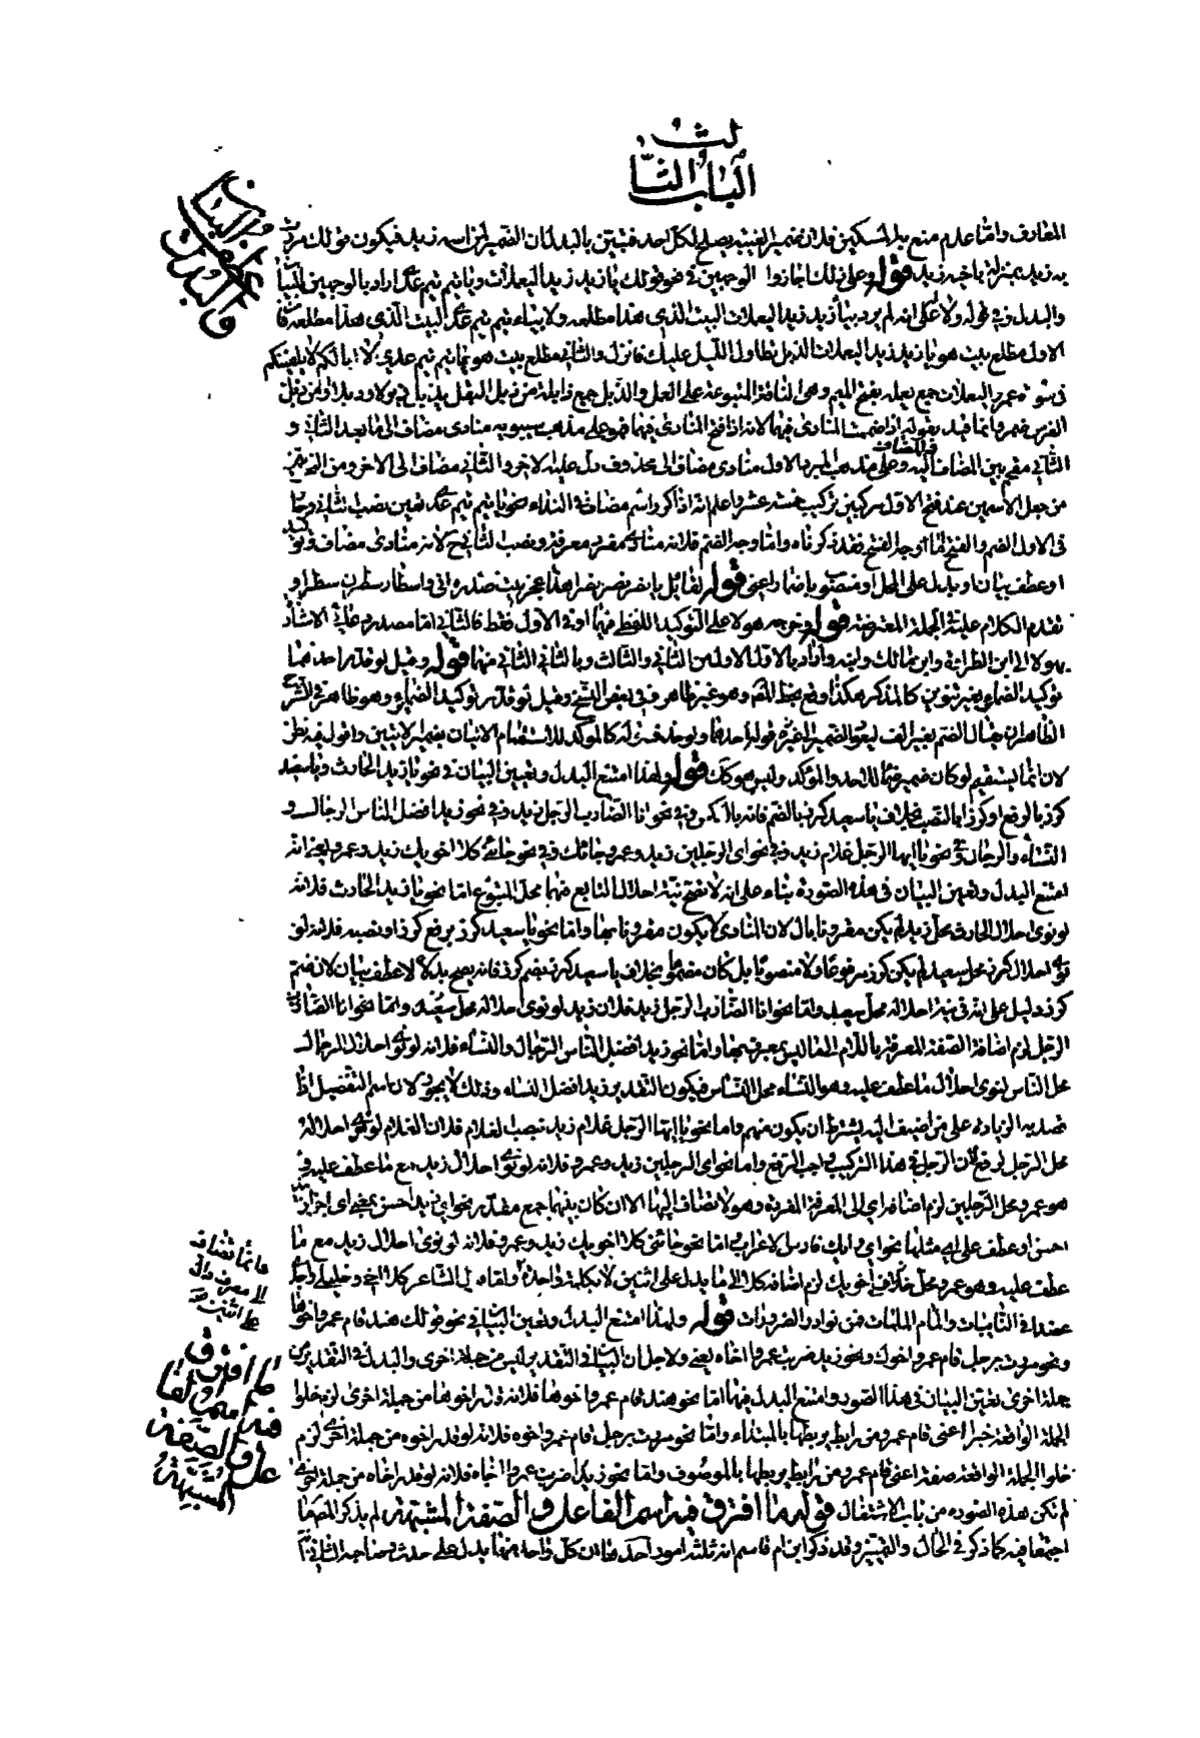 الباب الثالث
المعارف واما عدم منع بدل المسكين فلان ضمير الغيبة يصلح لكل احد فيتبين بالبدل ان الضمير لمن اسمه زيد فيكون قولك مررت
به زيد بمنزلة باخيه زيد قوله وعلى ذلك اجازوا الوجهين في نحو قولك يا زيد زيد اليعملات ويا تيم تيم عدي اراد بالوجهين البيان
والبدل وفي قوله ولا على انه لم يرد بيا زيد زيد اليعملات البيت الذي هذا مطلعه ولا بياء تيم تيم عدي البيت الذي هذا مطلعه فان
الاول مطلع بيت هو يا زيد زيد اليعملات الذبل تطاول الليل عليك فانزل والثاني مطلع بيت هو يا تيم تيم عدي لا ابا لكم لا يلقينكم
في سوءة عمر واليعملات جمع يعملة بفتح الميم وهي الناقة المطبوعة على العمل والذبل جمع ذابلة من ذبل البقل يذبل
الفرس ضمر وانما قيد بقوله اذا ضممت المنادى فيهما لانه اذا فتح المنادى فيهما فهو على مذهب سيبويه منادى مضاف الى ما بعد الثاني و
الثاني مقحم بين المضاف والمضاف اليه وعلى مذهب المبرد الاول منادى مضاف الى محذوف دل عليه الاخر والثاني مضاف الى الاخر ومن النحويين
من جعل الاسمين عند فتح الاول مركبين تركيب خمسة عشر واعلم انه اذا كرر اسم مضاف في النداء نحو يا تيم تيم عدي تعين نصب الثاني وجاز
في الاول الضم والفتح اما اوجه الفتح فقد ذكرناه واما وجه الضم فلانه منادى مفرد معرفة ونصب الثاني ح لانه منادى مضاف او توكيد
او عطف بيان او بدل على المحل او منصوب باضمار اعني قوله لقائل يا نصر نصر نصرا هذا عجز بيت صدره اني واسطار سطرن سطرا و
تقدم الكلام عليه في الجملة المعترضة قوله وخرجه هؤلاء على التوكيد اللفظي فيهما او في الاول فقط فالثاني اما مصدر دعائي الاشارة
بهؤلاء الى ابن الطراوة وابن مالك وابنه واراد بالاول الاولين الثاني والثالث وبالثاني الثاني منهما قوله وقيل لو قدر احدهما
توكيدا لضما بغير تنوين كالمذكر هكذا وقع بخط المص وهو غير ظاهر وفي بعض النسخ وقيل لو قدر توكيدا لضما وهو ظاهر في الشرح
الظاهر ان يقال لضم بغير الف ليعود الضمير الى غيره قوله احدهما
لانه انما يستقيم لو كان ضمير ضما للاحد والمؤكد وليس هو كك قوله ولهذا امتنع البدل وتعين البيان في نحو يا زيد الحارث ويا سعيد
كرز بالرفع او كرزا بالنصب بخلاف يا سعيد كرز بالضم فانه بالعكس وفي نحو انا الضارب الرجل زيد وفي نحو زيد افضل الناس الرجال و
النساء والرجال وفي نحو يا ايها الرجل غلام زيد وفي نحو اي الرجلين زيد وعمرو جاءك وفي نحو جاءني كلا اخويك زيد وعمرو يعني انه
امتنع البدل وتعين البيان في هذه الصورة بناء على انه لا تصح نية احلال التابع فيها محل المتبوع اما نحو يا زيد الحارث فلانه
لو نوى احلال الحارث محل زيد لم يكن مقرونا بال لان المنادى لا يكون مقرونا بها واما نحو يا سعيد كرز برفع كرز او نصبه فلانه لو
نوى احلال كرز محل سعيد لم يكن كرز مرفوعا ولا منصوبا بل كان مضموما بخلاف يا سعيد كرز بضم كرز فانه يصح بدلا لا عطف بيان لان ضم
كرز دليل على انه في نية احلاله محل سعيد واما نحو انا الضارب الرجل زيد فلان زيد لو نوى احلاله محل
الرجل لزم اضافة الصفة المعرفة باللام الى ما ليس بمعرف بها واما نحو زيد افضل الناس الرجال والنساء فلانه لو نوى احلال الرجال
محل الناس لنوى احلال ما عطف عليه وهو النساء محل الناس فيكون التقدير زيد افضل النساء وذلك لا يجوز لان اسم التفضيل اذا
قصد به الزيادة على من اضيف اليه يشترط ان يكون منهم واما نحو يا ايها الرجل غلام زيد بنصب الغلام فلان الغلام لو نوى احلاله
محل الرجل لرفع لان الرجل في هذا التركيب واجب الرفع واما نحو اي الرجلين زيد وعمرو فلانه لو نوى احلال زيد مع ما عطف عليه و
هو عمرو محل الرجلين لزم اضافة اي الى المعرفة المفردة وهو لا تضاف اليها الا ان كان بينهما جمع مقدر نحو اي زيد احسن بمعنى اي اجزائه
احسن او عطف على اي مثلها نحو ايي وايك فارس الاعراب واما نحو جاءني كلا اخويك زيد وعمرو فلانه لو نوى احلال زيد مع ما
عطف عليه وهو عمرو محل اخويك لزم اضافة كلا الى ما يدل على اثنين لا بكلمة واحدة واما قول الشاعر كلا اخي وخليلي واجدي
عضدا في النائبات والمام الملمات فمن نوادر الضرورات قوله ولهذا امتنع البدل وتعين البيان في نحو قولك هند قام عمرو اخوها
ونحو مررت برجل قام عمرو اخوه ونحو زيد ضربت عمرا اخاه يعني ولاجل ان البيان في التقدير ليس من جملة اخرى والبدل في التقدير من
جملة اخرى تعين البيان في هذا الصور وامتنع البدل فيها اما نحو هند قام عمرو اخوها فلانه لو قدر اخوها من جملة اخرى لزم خلو
الجملة الواقعة خبرا اعني قام عمرو من رابط يربطها بالمبتداء واما نحو مررت برجل قام عمرو اخوه فلانه لو قدر اخوه من جملة اخرى لزم
خلو الجملة الواقعة صفة اعني قام عمرو من رابط يربطها بالموصوف واما نحو زيدا ضربت عمرا اخاه فلانه لو قدر اخاه من جملة اخرى
لم تكن هذه الصورة من باب الاشتغال قوله ما افترق فيه اسم الفاعل والصفة المشبهة لم يذكر المص ما
اجتمعا فيه كما ذكر في الحال والتمييز وقد ذكر ابن ام قاسم انه ثلثة امور احدها ان كل واحد منهما يدل على حدث وصاحبه الثاني
عطف البيان
والبدل
وانما تضاف
الى معرف دال
على اثنين
ما افترق
فيه اسم الفا
عل والصفة
المشبهة